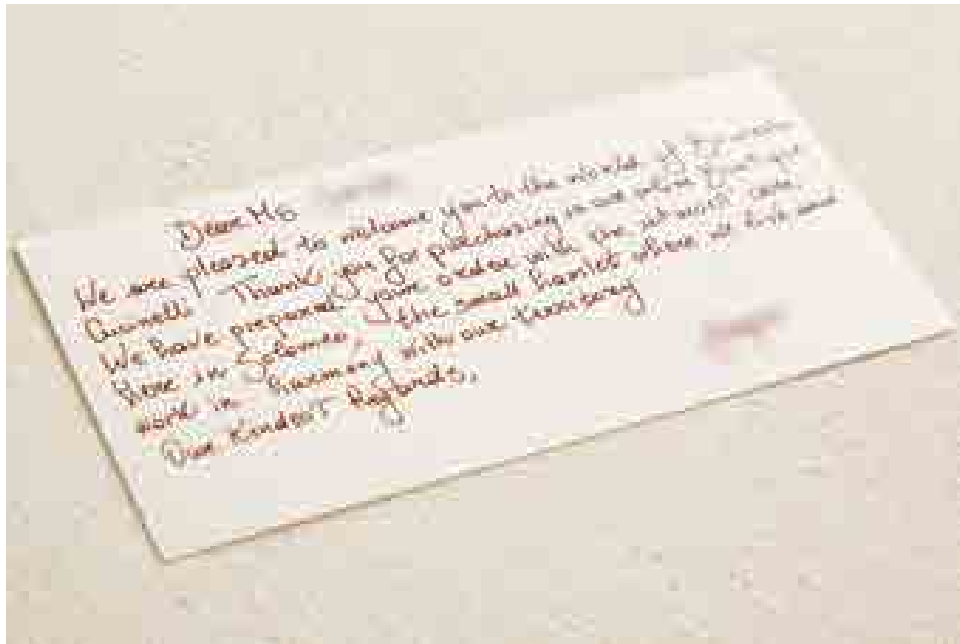 Dear Ms
We are pleased to welcome you to the world of
Cucinelli. Thank you for purchasing in our online
We have prepared your order with the utmost care
here in Solomeo, the small hamlet where we live and
work in harmony with our territory
Our Kindest Regards,